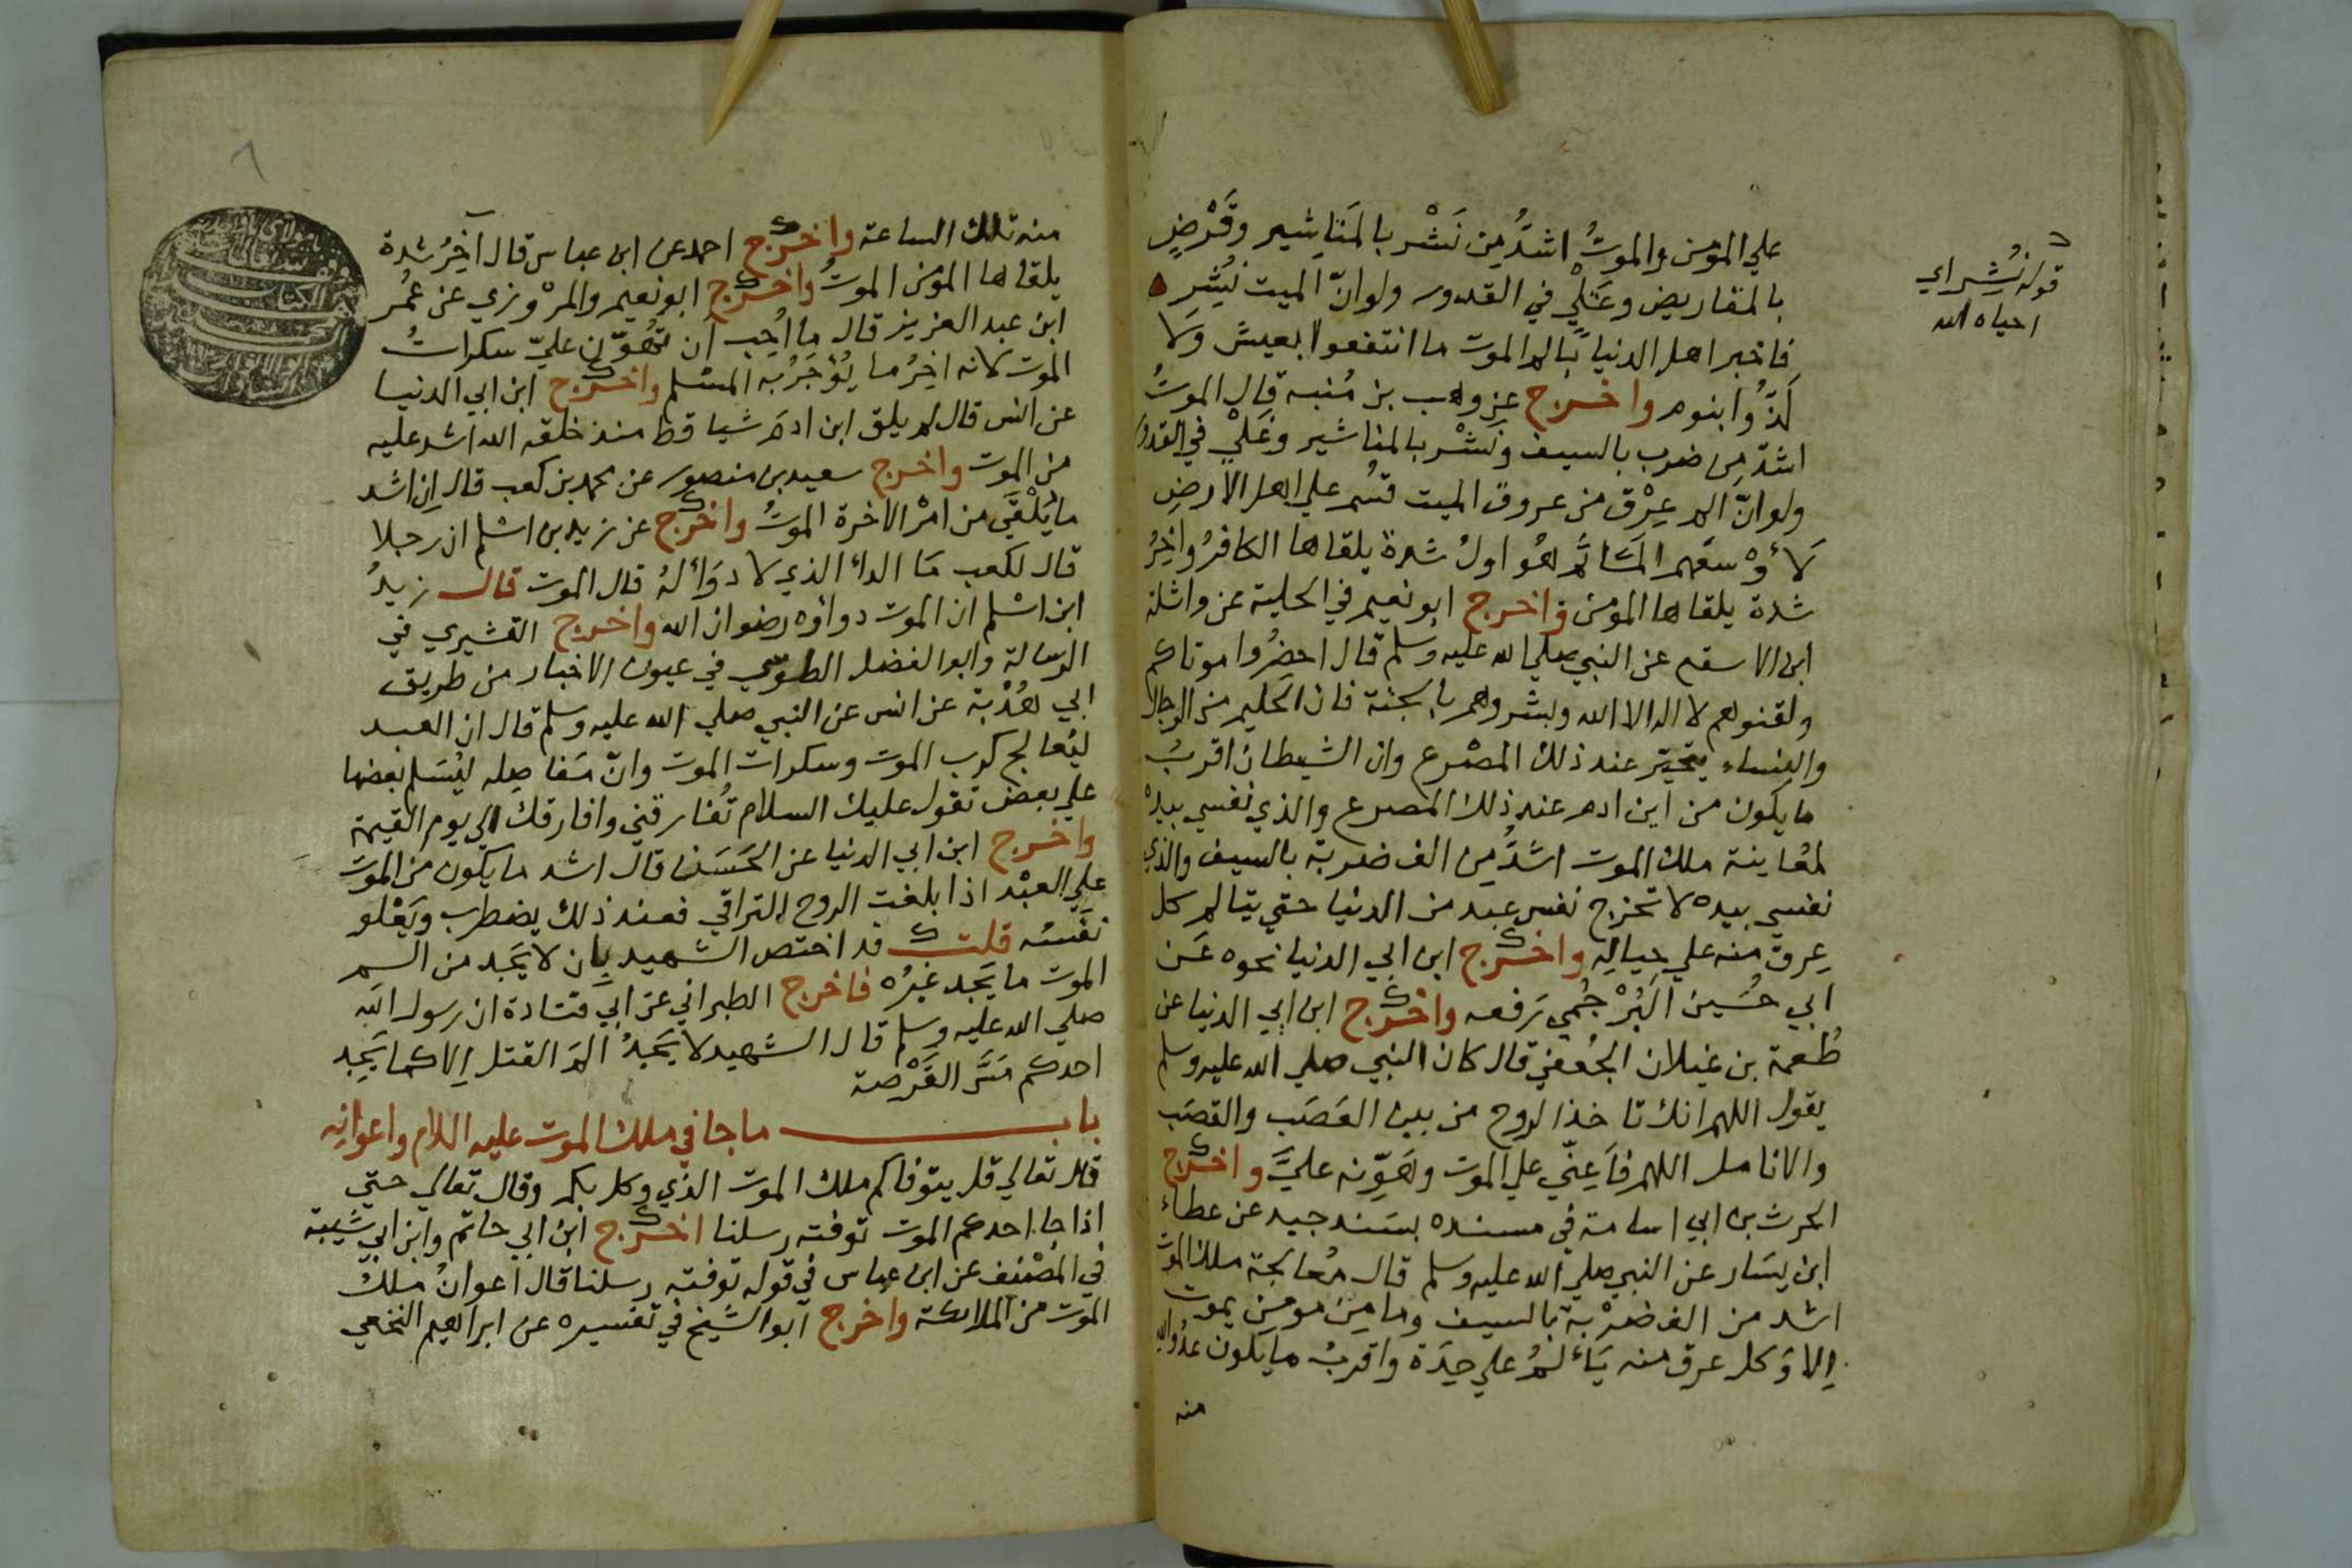 علي المؤمن والموتُ اشدُّ من نَشْرٍ بالمَنَاشير وقَرْضٍ
بالمقاريض وغَلْيٍ في القدور ولو انّ الميت نُشِر
فاخبر اهل الدنيا بالم الموت ما انتفعوا بعيش وَلا
لَذُّوا بنوم واخرج عن وهب بن مُنبه قال الموتُ
اشدّ مِن ضرب بالسيف ونَشْرٍ بالمناشير وغَلْيٍ في القدور
ولو انّ الم عِرْق من عروق الميت قسم علي اهل الارضِ
لَأوْسعَهم المَّا ثم هُو اولُ شدة يلقاها الكافرُ واخِرُ
شدة يلقاها المؤمن واخرج ابو نعيم في الحلية عن واثلة
ابن الاسقع عن النبي صلي الله عليه وسلم قال احضرُوا موتاكم
ولقنوهم لا اله الا الله وبشروهم بالجنة فان الحليم من الرجال
والنساء يتحيّر عند ذلك المصْرع وان الشيطان اقربُ
ما يكون من ابن ادم عند ذلك المصرع والذي نفسي بيده
لمُعاينة ملك الموت اشدُّ مِن الف ضربة بالسيف والذي
نفسي بيده لا تخرج نفس عبد من الدنيا حتي يتالم كل
عِرق منه علي حِيالِه واخرج ابن ابي الدنيا نحوه عَن
ابي حُسَين البُرْجُمي رَفعه واخرج ابن ابي الدنيا عن
طُعمة بن غيلان الجُعْفي قال كان النبي صلي الله عليه وسلم
يقول اللهم انك تاخذ الروح من بين العَصَب والقصَب
والانامل اللهم فاَعِنّي علي الموت وهَوِّنه عليَّ واخرج
الحرث بن ابي اسامة في مسنده بسَند جيد عن عطاء
ابن يسَار عن النبي صلي الله عليه وسلم قال مُعالجة ملك الموت
اشد من الف ضرْبة بالسيف وما مِن مومِن يموت
اِلا وَكل عرق منه يَألمُ علي حِدَة واقربُ ما يكون عدُو الله
منه
قوله نُشِر اي
احياه الله
منه تلك الساعة واخرج احمد عن ابن عباس قال آخِرُ شدة
يلقاها المؤمن الموتُ واخرج ابو نعيم والمرْوزي عن عُمر
ابن عبد العزيز قال ما اُحِب اَن تُهوّن عليّ سكراتُ
الموت لانه اخِرُ ما يُؤجَرُ به المسْلم واخرج ابن ابي الدنيا
عن انس قال لم يلق ابن ادَم شيا قط منذ خلقه الله اشد عليه
من الموت واخرج سعيد بن منصور عن محمد بن كعب قال اِن اشد
ما يَلْقَي من امْر الاخرة الموتُ واخرج عن زيد بن اسْلم ان رجلا
قال لكعب مَا الداء الذي لا دوَاء لهُ قال الموت قال زيدُ
ابن اسْلم ان الموت دواؤه رضوان الله واخرج القشيري في
الرسالة وابو الفضل الطوسي في عيون الاخبار من طريق
ابي هُدْبة عن انس عن النبي صلي الله عليه وسلم قال ان العبد
ليُعالج كرب الموت وسكرات الموت وانّ مَفاصِله ليُسَلم بعضها
علي بعض تقول عليك السلام تُفارقني وافارقك الي يوم القيمة
واخرج ابن ابي الدنيا عن الحَسَن قال اشد ما يكون من الموت
علي العبْد اذا بلغت الروح التراقي فعند ذلك يضطرب ويَعْلو
نفَسُه قلت قد اختص الشهيد بِان لا يَجد من الم
الموت ما يَجد غيرُه فاخرج الطبراني عن ابي قتادة ان رسول الله
صلي الله عليه وسلم قال الشهيد لا يَجدُ المَ القتل اِلا كما يَجِد
احدكم مَسَّ القَرْصة
باب ما جا في ملك الموت عليه السلام واعوانِه
قال تعالي قل يتوفاكم ملك الموت الذي وكل بكم وقال تعالي حتي
اذا جا احدكم الموت توفته رسلنا اخرج ابن ابي حاتم وابن ابي شَيبة
في المصَنف عن ابن عباس في قوله توفته رسلنا قال اعوانُ ملك
الموت من الملائكة واخرج ابو الشيخ في تفسيره عن ابراهيم النخعي